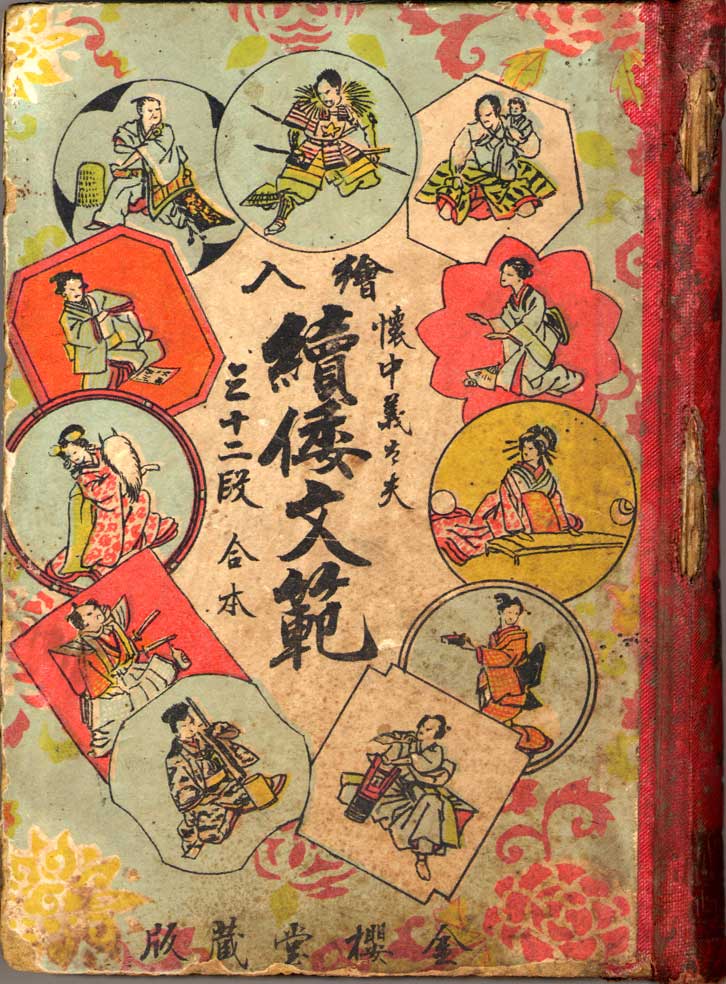 繪入
懷中義太夫
續倭文範
三十二段 合本
金櫻堂蔵版